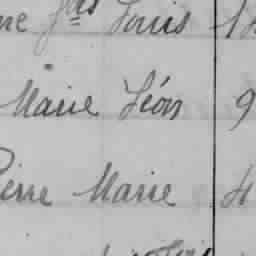 ne fçois Louis 1
Marie Léon 9
Pierre Marie 4